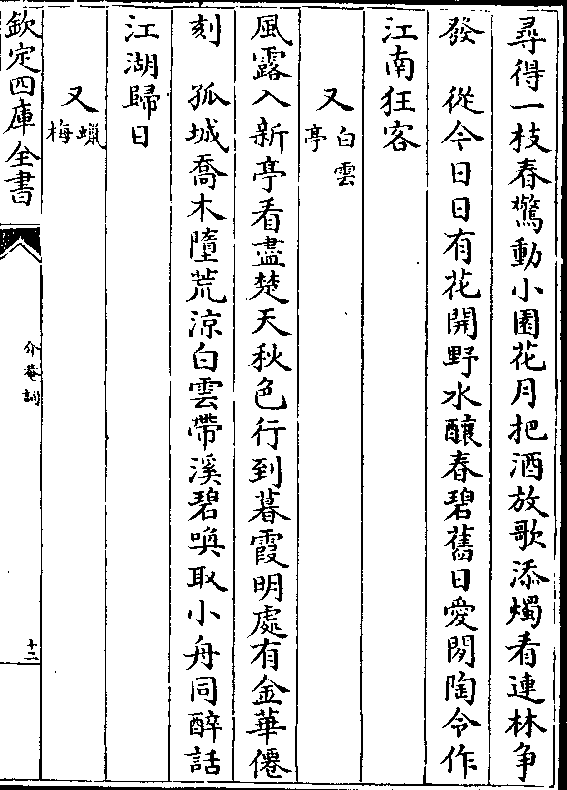 尋得一枝春驚動小園花月把酒放歌添燭看連林争
發　從今日日有花開野水釀春碧舊日愛閑陶令作
江南狂客
又白雲亭
風露入新亭看盡楚天秋色行到暮霞明處有金華僊
刻　孤城喬木墮荒涼白雲帶溪碧喚取小舟同醉話
江湖歸日
又蠟梅
欽定四庫全書
介菴詞
十二